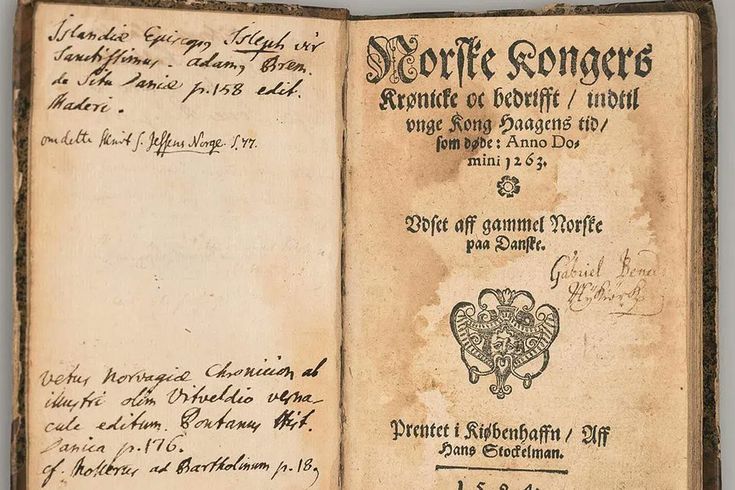 Islandiæ Episcop, Isleph vir
Sanctissimus. adam, Brem.
de Situ Daniæ p.158 edit.
Maderi.
om dette Skrivt S. Jessens Norge. S.77.
vetus Norvagiæ Chronicion ab
illustri olim Vitveldio verna-
cule editum. Pontanus Hist.
Danica p.176.
cf. Mollerus ad Bartholinum p.18
Norske Kongers
Krønicke oc bedrifft / indtil
vnge Kong Haagens tid /
som døde: Anno Do-
mini 1263.
Vdset aff gammel Norske
paa Danske.
Gabriel Bene
Prentet i Kiøbenhaffn / Aff
Hans Stockelman.
1594.